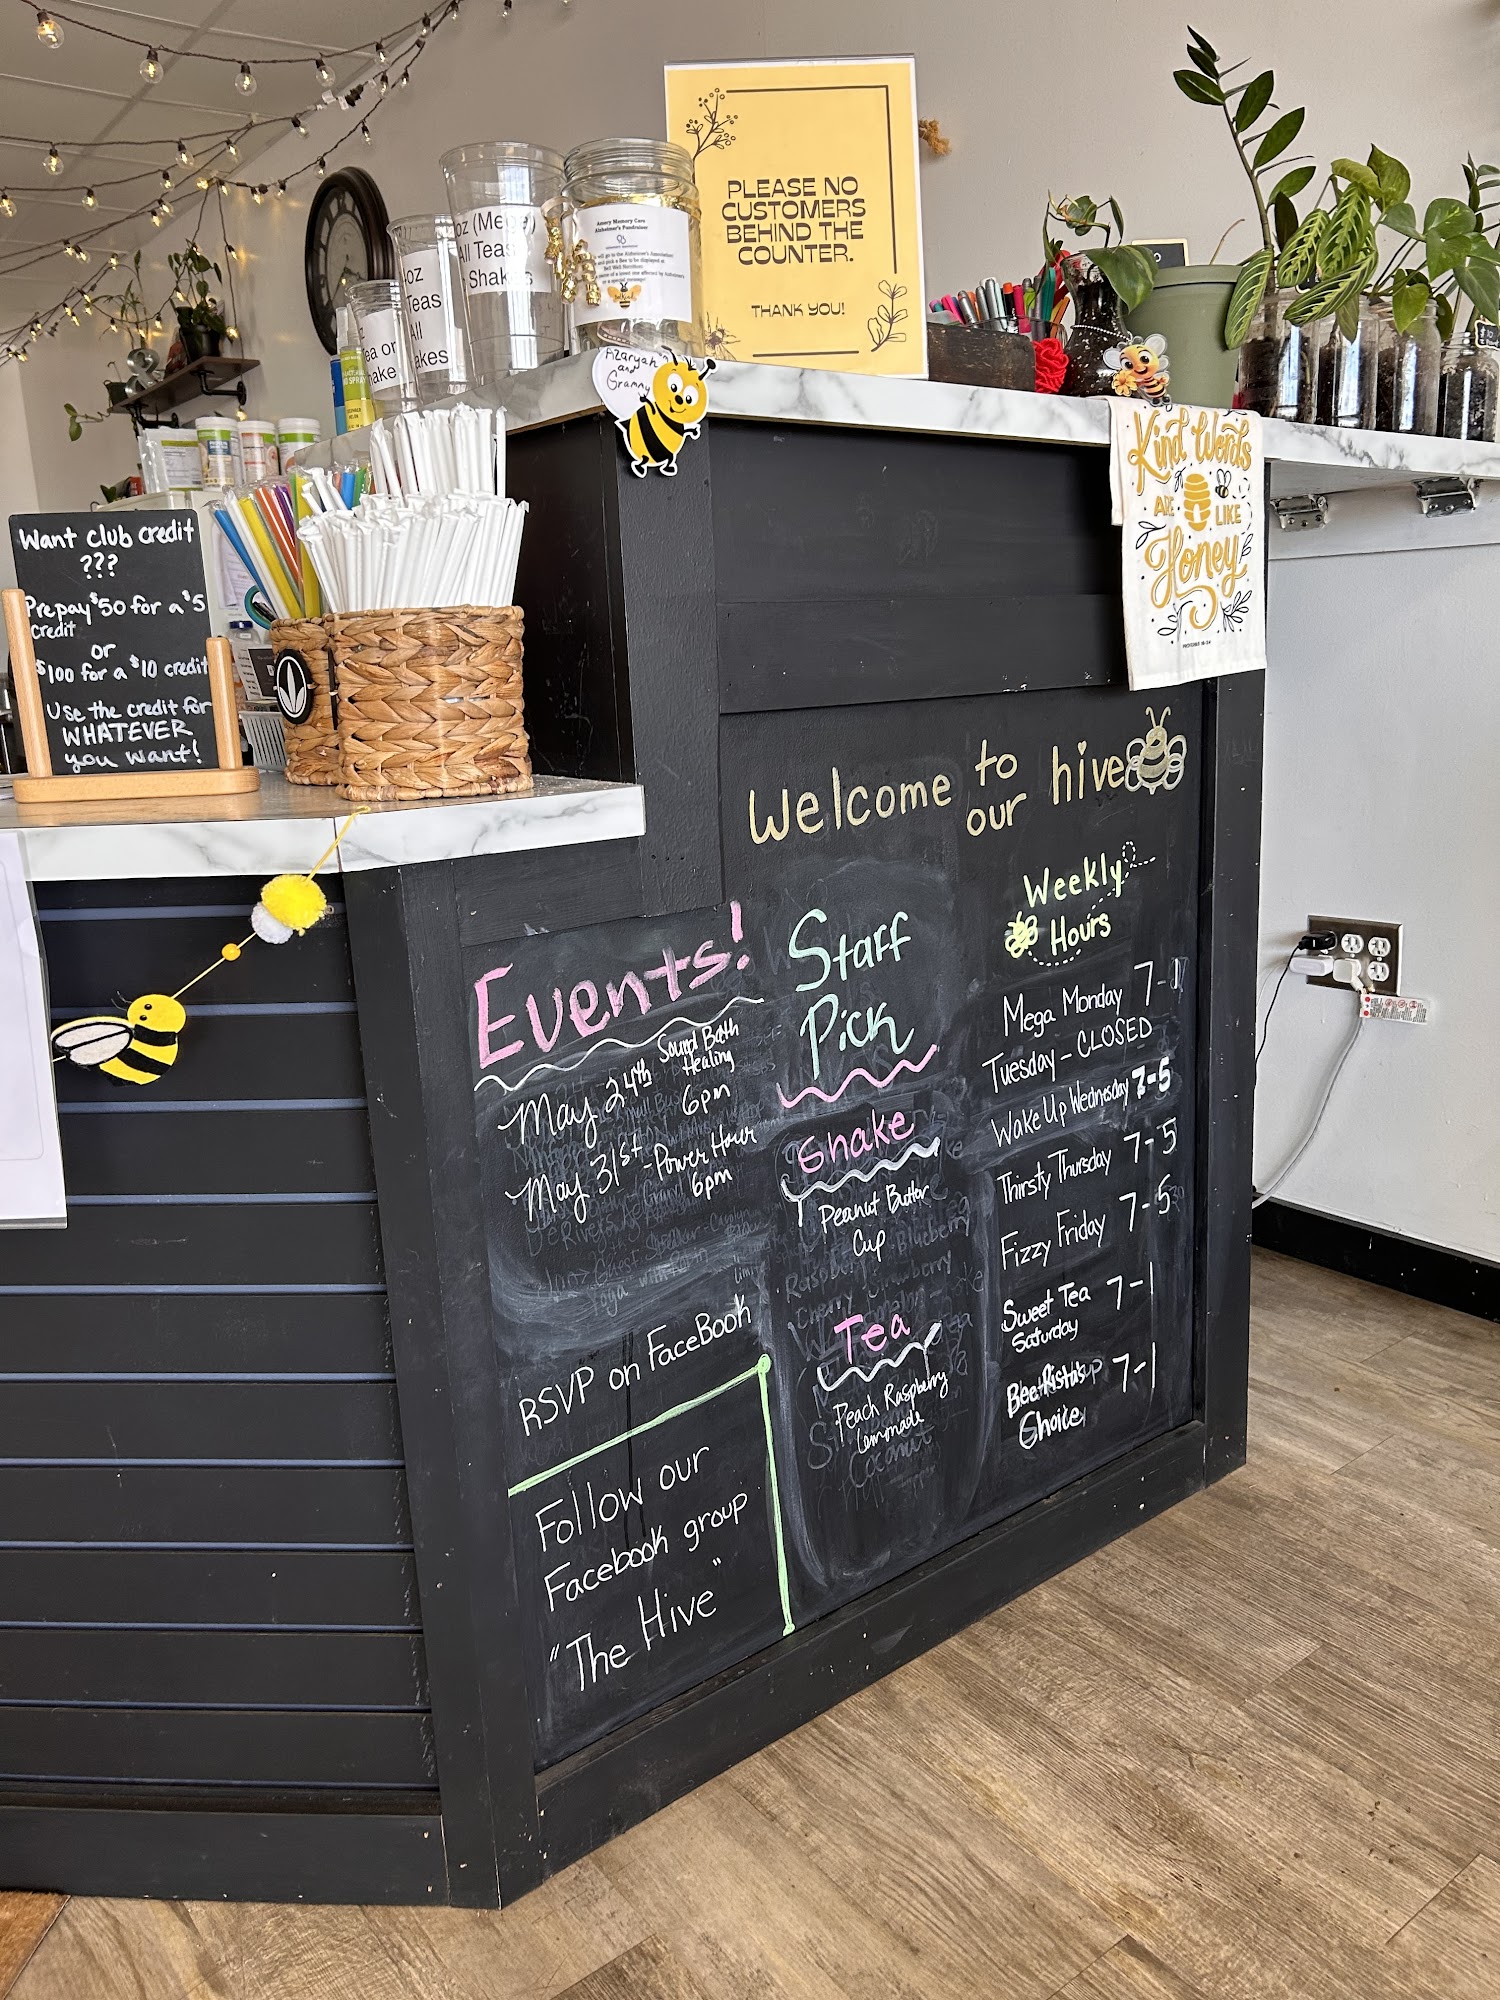 PLEASE NO
CUSTOMERS
BEHIND THE
COUNTER.
THANK YOU!
oz (Mega)
All Teas
Shakes
oz
Teas
All
akes
ea or
hake
Amery Memory Care
Alzheimer's Fundraiser
Azaryah
and
Grammy
Kind Words
ARE LIKE
Honey
Want club credit
???
Prepay $50 for a $5
credit
or
$100 for a $10 credit
Use the credit for
WHATEVER
you want!
Welcome to our hive
Events!
May 24th Sound Bath
Healing
6pm
May 31st - Power Hour
6pm
RSVP on FaceBook
Follow our
Facebook group
"The Hive"
Staff
Pick
Shake
Peanut Butter
Cup
Tea
Peach Raspberry
Lemonade
Weekly
Hours
Mega Monday 7-1
Tuesday - CLOSED
Wake Up Wednesday 7-5
Thirsty Thursday 7-5
Fizzy Friday 7-5
Sweet Tea 7-1
Saturday
Bee-Ristas 7-1
Choice